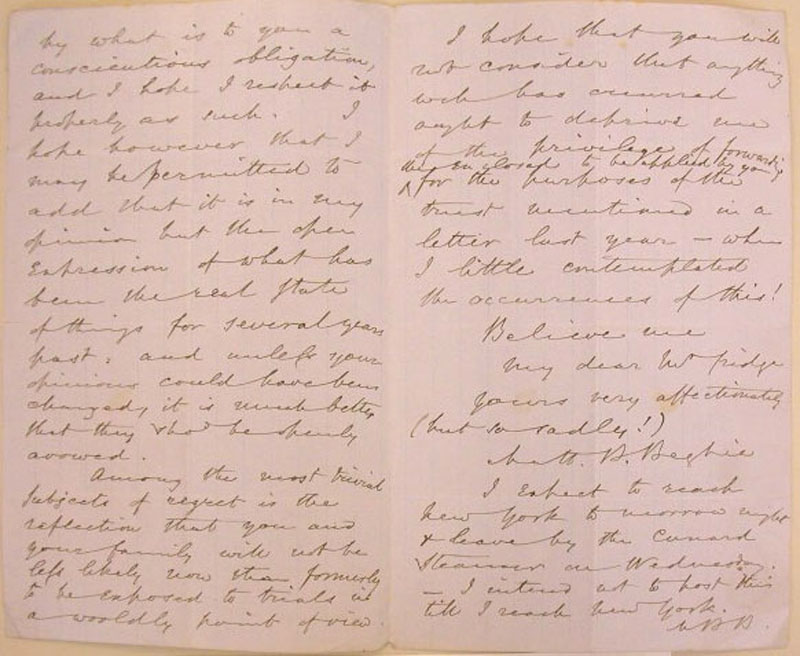 by what is to you a
conscientious obligation,
and I hope I respect it
properly as such. I
hope however that I
may be permitted to
add that it is in my
opinion but the open
expression of what has
been the real state
of things for several years
past: and unless your
opinions could have been
changed, it is much better
that they shod be openly
avowed.
Among the most trivial
subjects of regret is the
reflection that you and
your family will not be
less likely now than formerly
to be exposed to trials in
a worldly point of view.
I hope that you will
not consider that anything
wch has occurred
ought to deprive me
of the privilege of forwarding
the enclosed to be applied by you
for the purposes of the
trust mentioned in a
letter last year - when
I little contemplated
the occurrences of this!
Believe me
my dear Mr Cridge
yours very affectionately
(but so sadly!)
Matt. B. Begbie
I expect to reach
New York to morrow night
& leave by the Cunard
Steamer on Wednesday.
- I intend not to post this
till I reach New York.
MBB.